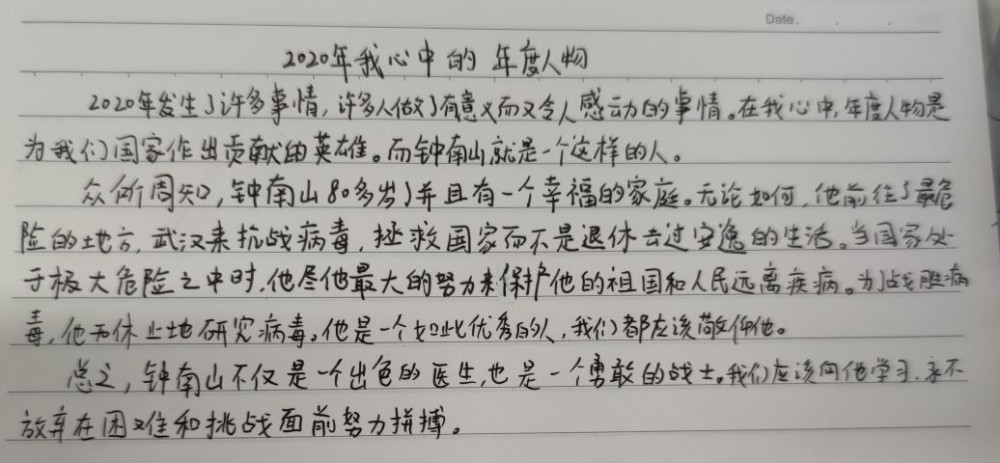 Date.
2020年我心中的年度人物
2020年发生了许多事情,许多人做了有意义而又令人感动的事情。在我心中,年度人物是
为我们国家作出贡献的英雄。而钟南山就是一个这样的人。
众所周知,钟南山80多岁了并且有一个幸福的家庭。无论如何,他前往了最危
险的地方,武汉来抗战病毒,拯救国家而不是退休去过安逸的生活。当国家处
于极大危险之中时,他尽他最大的努力来保护他的祖国和人民远离疾病。为了战胜病
毒,他无休止地研究病毒。他是一个如此优秀的人,我们都应该敬仰他。
总之,钟南山不仅是一个出色的医生,也是一个勇敢的战士。我们应该向他学习,永不
放弃在困难和挑战面前努力拼搏。